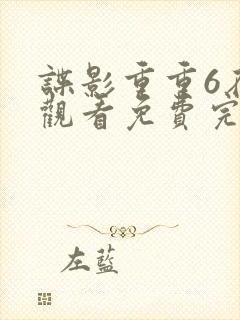 諜影重重6在
觀看免費完
左藍